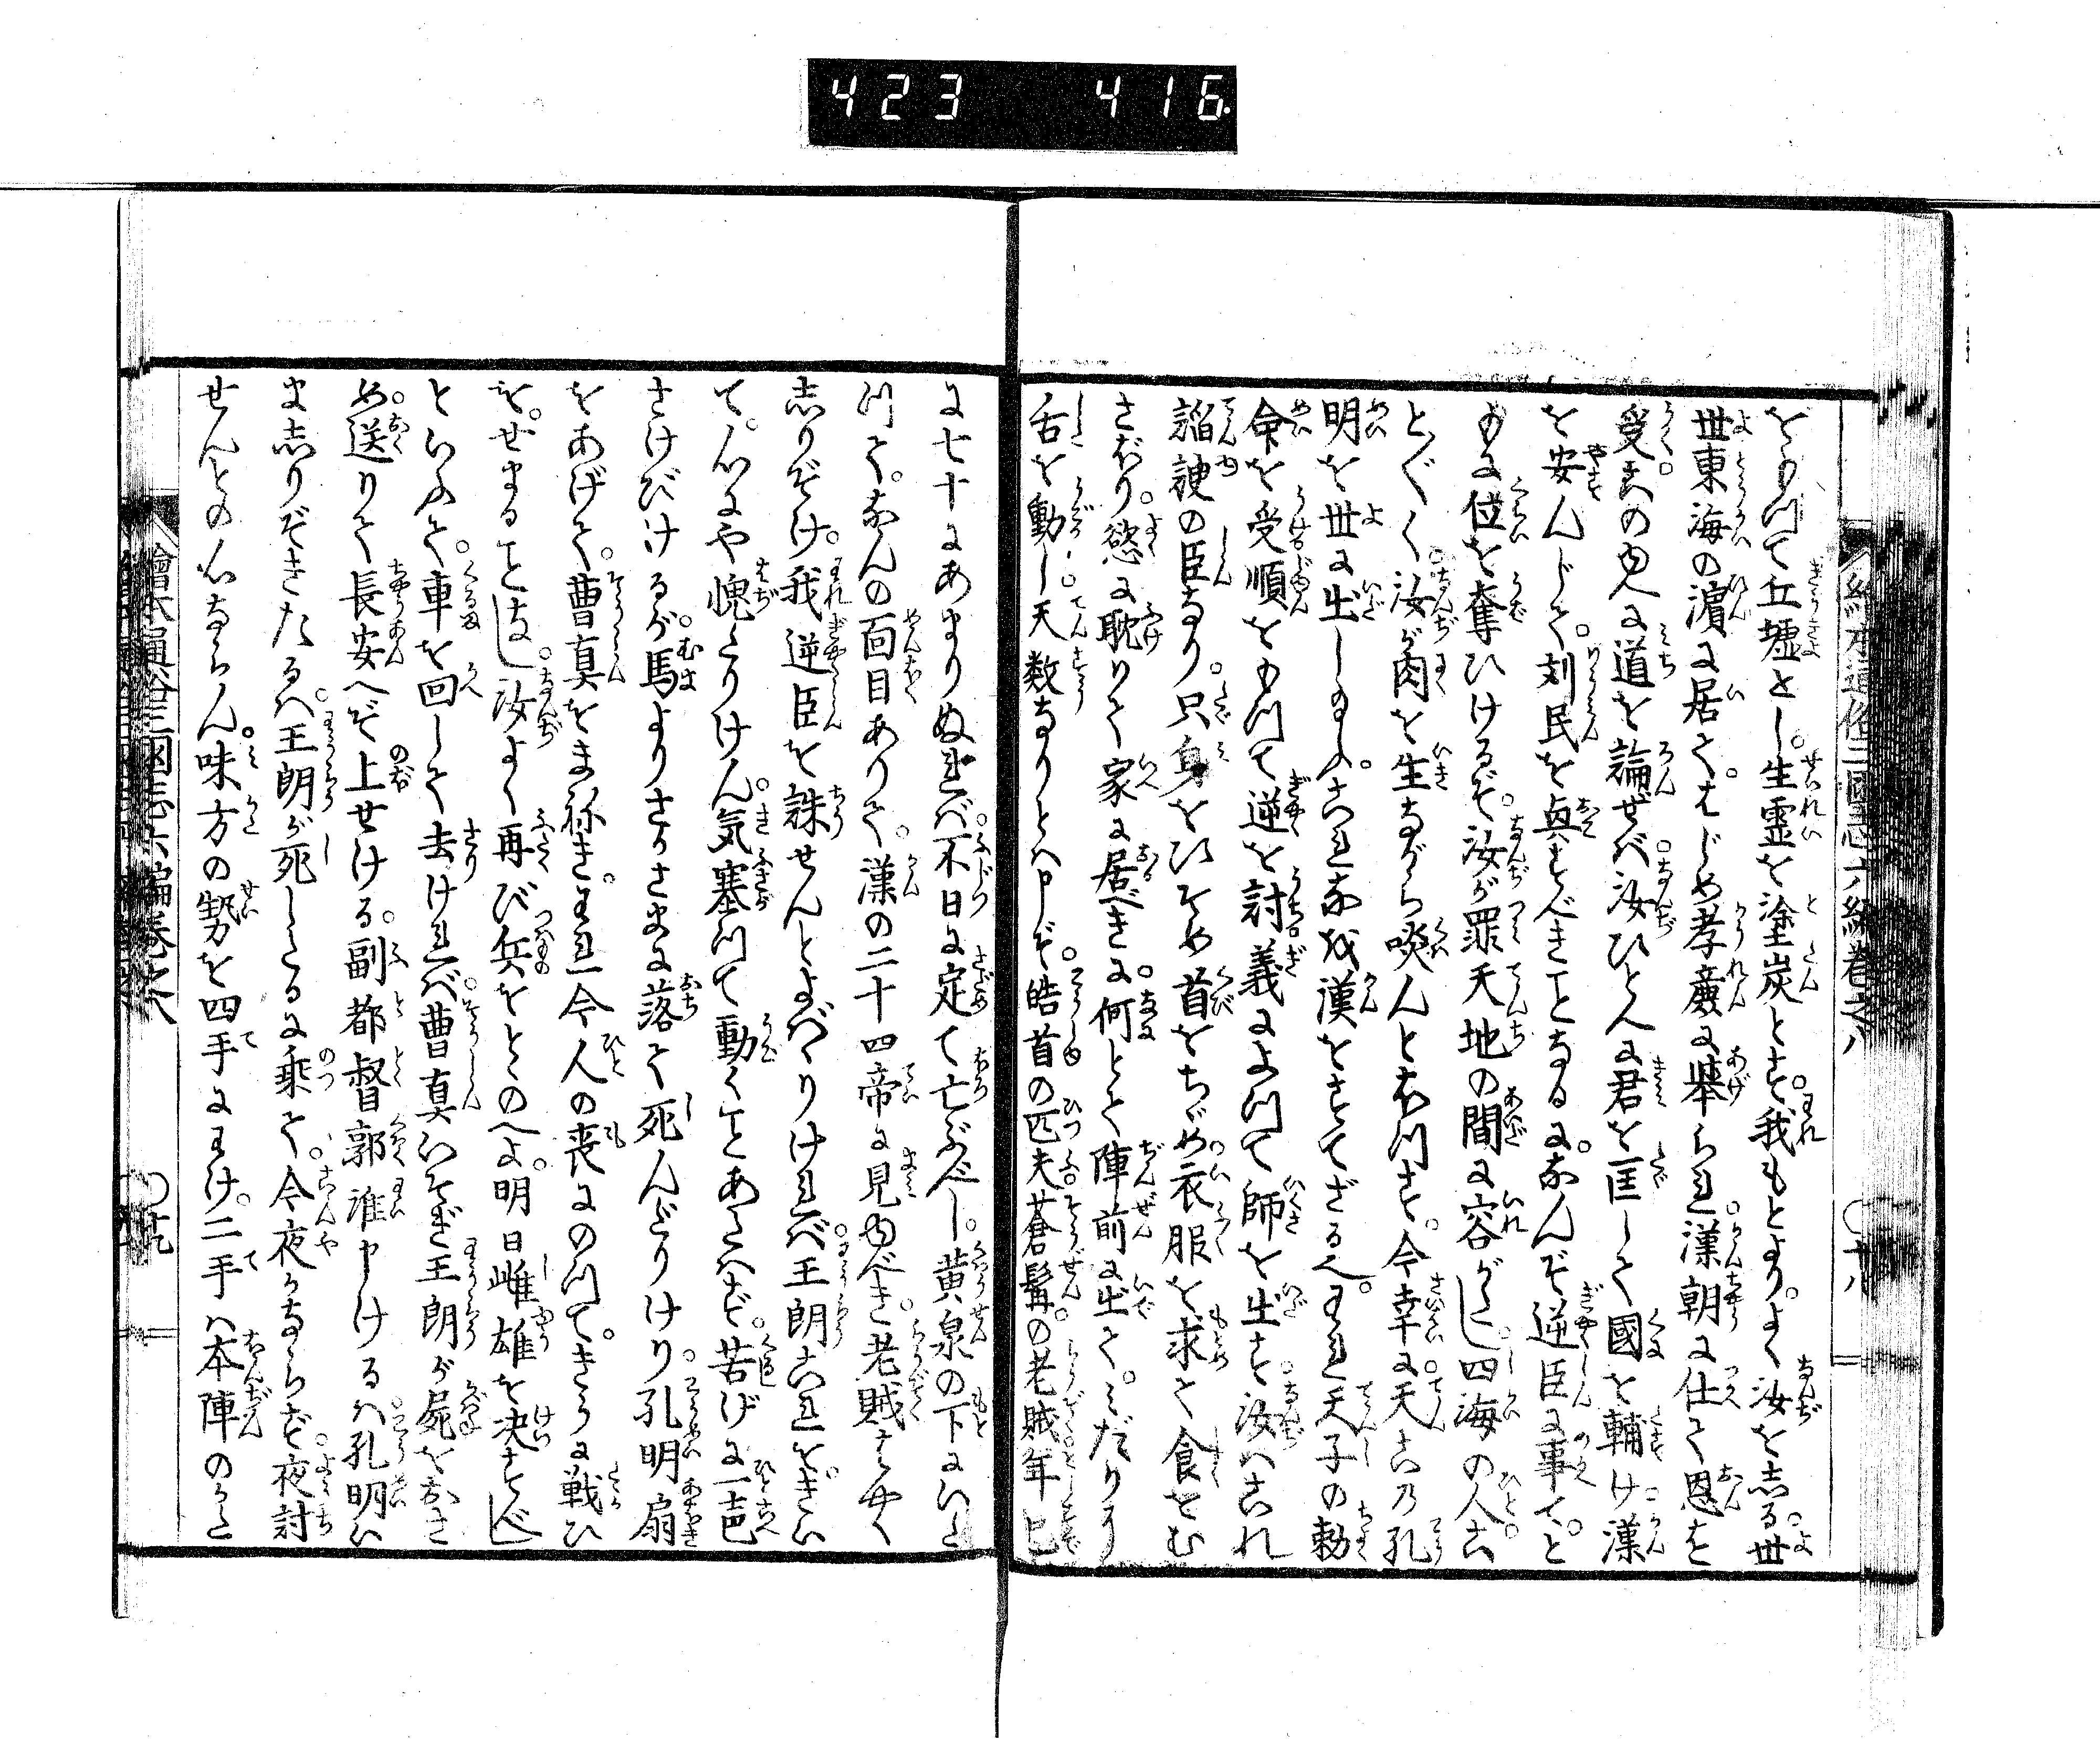 423 416
繪本通俗三國志六編卷之八 ○十八
をもつて丘墟とし。生霊を塗炭とす。我もとより。よく汝を志る。世
世東海の濱に居て。はじめ孝廉に挙られ。漢朝に仕て恩を
受。その内に道を論ぜば。汝ひとへに君を匡して國を輔け。漢
を安んじて。刘民を與すべきことなるに。なんぞ逆臣に事て。と
もに位を奪ひけるぞ。汝が罪天地の間に容がたし。四海の人こ
とごとく汝が肉を生ながら啖んとおもす。今幸に天この孔
明を世に出し玉ふ。これなを漢をすてざるへ。われ天子の勅
命を受。順をもつて逆を討。義によつて師を出す。汝はこれ
謟諛の臣なり。只身をひそめ首をちゞめ。衣服を求て食をむ
さぼり。慾に耽りて家に居べきに。何とて陣前に出て。みだりに
舌を動し。天数なりとは申ぞ。皓首の匹夫。蒼髯の老賊。年巳
に七十にあまりぬれば。不日に定て亡ぶべし。黄泉の下にいた
つて。なんの面目ありて。漢の二十四帝に見ゆべき。老賊はやく
志りぞけ。我逆臣を誅せんとよばゝりければ。王朗これをきい
て。心にや愧たりけん。気塞つて動くことあたはず。苦げに一声
さけびけるが。馬よりさかさまに落て死んだりけり。孔明扇
をあげて。曹真をまねき。われ今人の喪にのつて。きうに戦ひ
を。せまることなし。汝よく再び兵をとゝのへよ。明日雌雄を決すべし
といふて。車を回して去ければ。曹真いそぎ王朗が屍をおさ
め。送りて長安へぞ上せける。副都督郭淮申けるは。孔明い
ま志りぞきたるは。王朗が死したるに乗て。今夜かならず夜討
せんとの心ならん。味方の勢を四手にわけ。二手は本陣のかた
繪本通俗三國志六編卷之八 ○十九